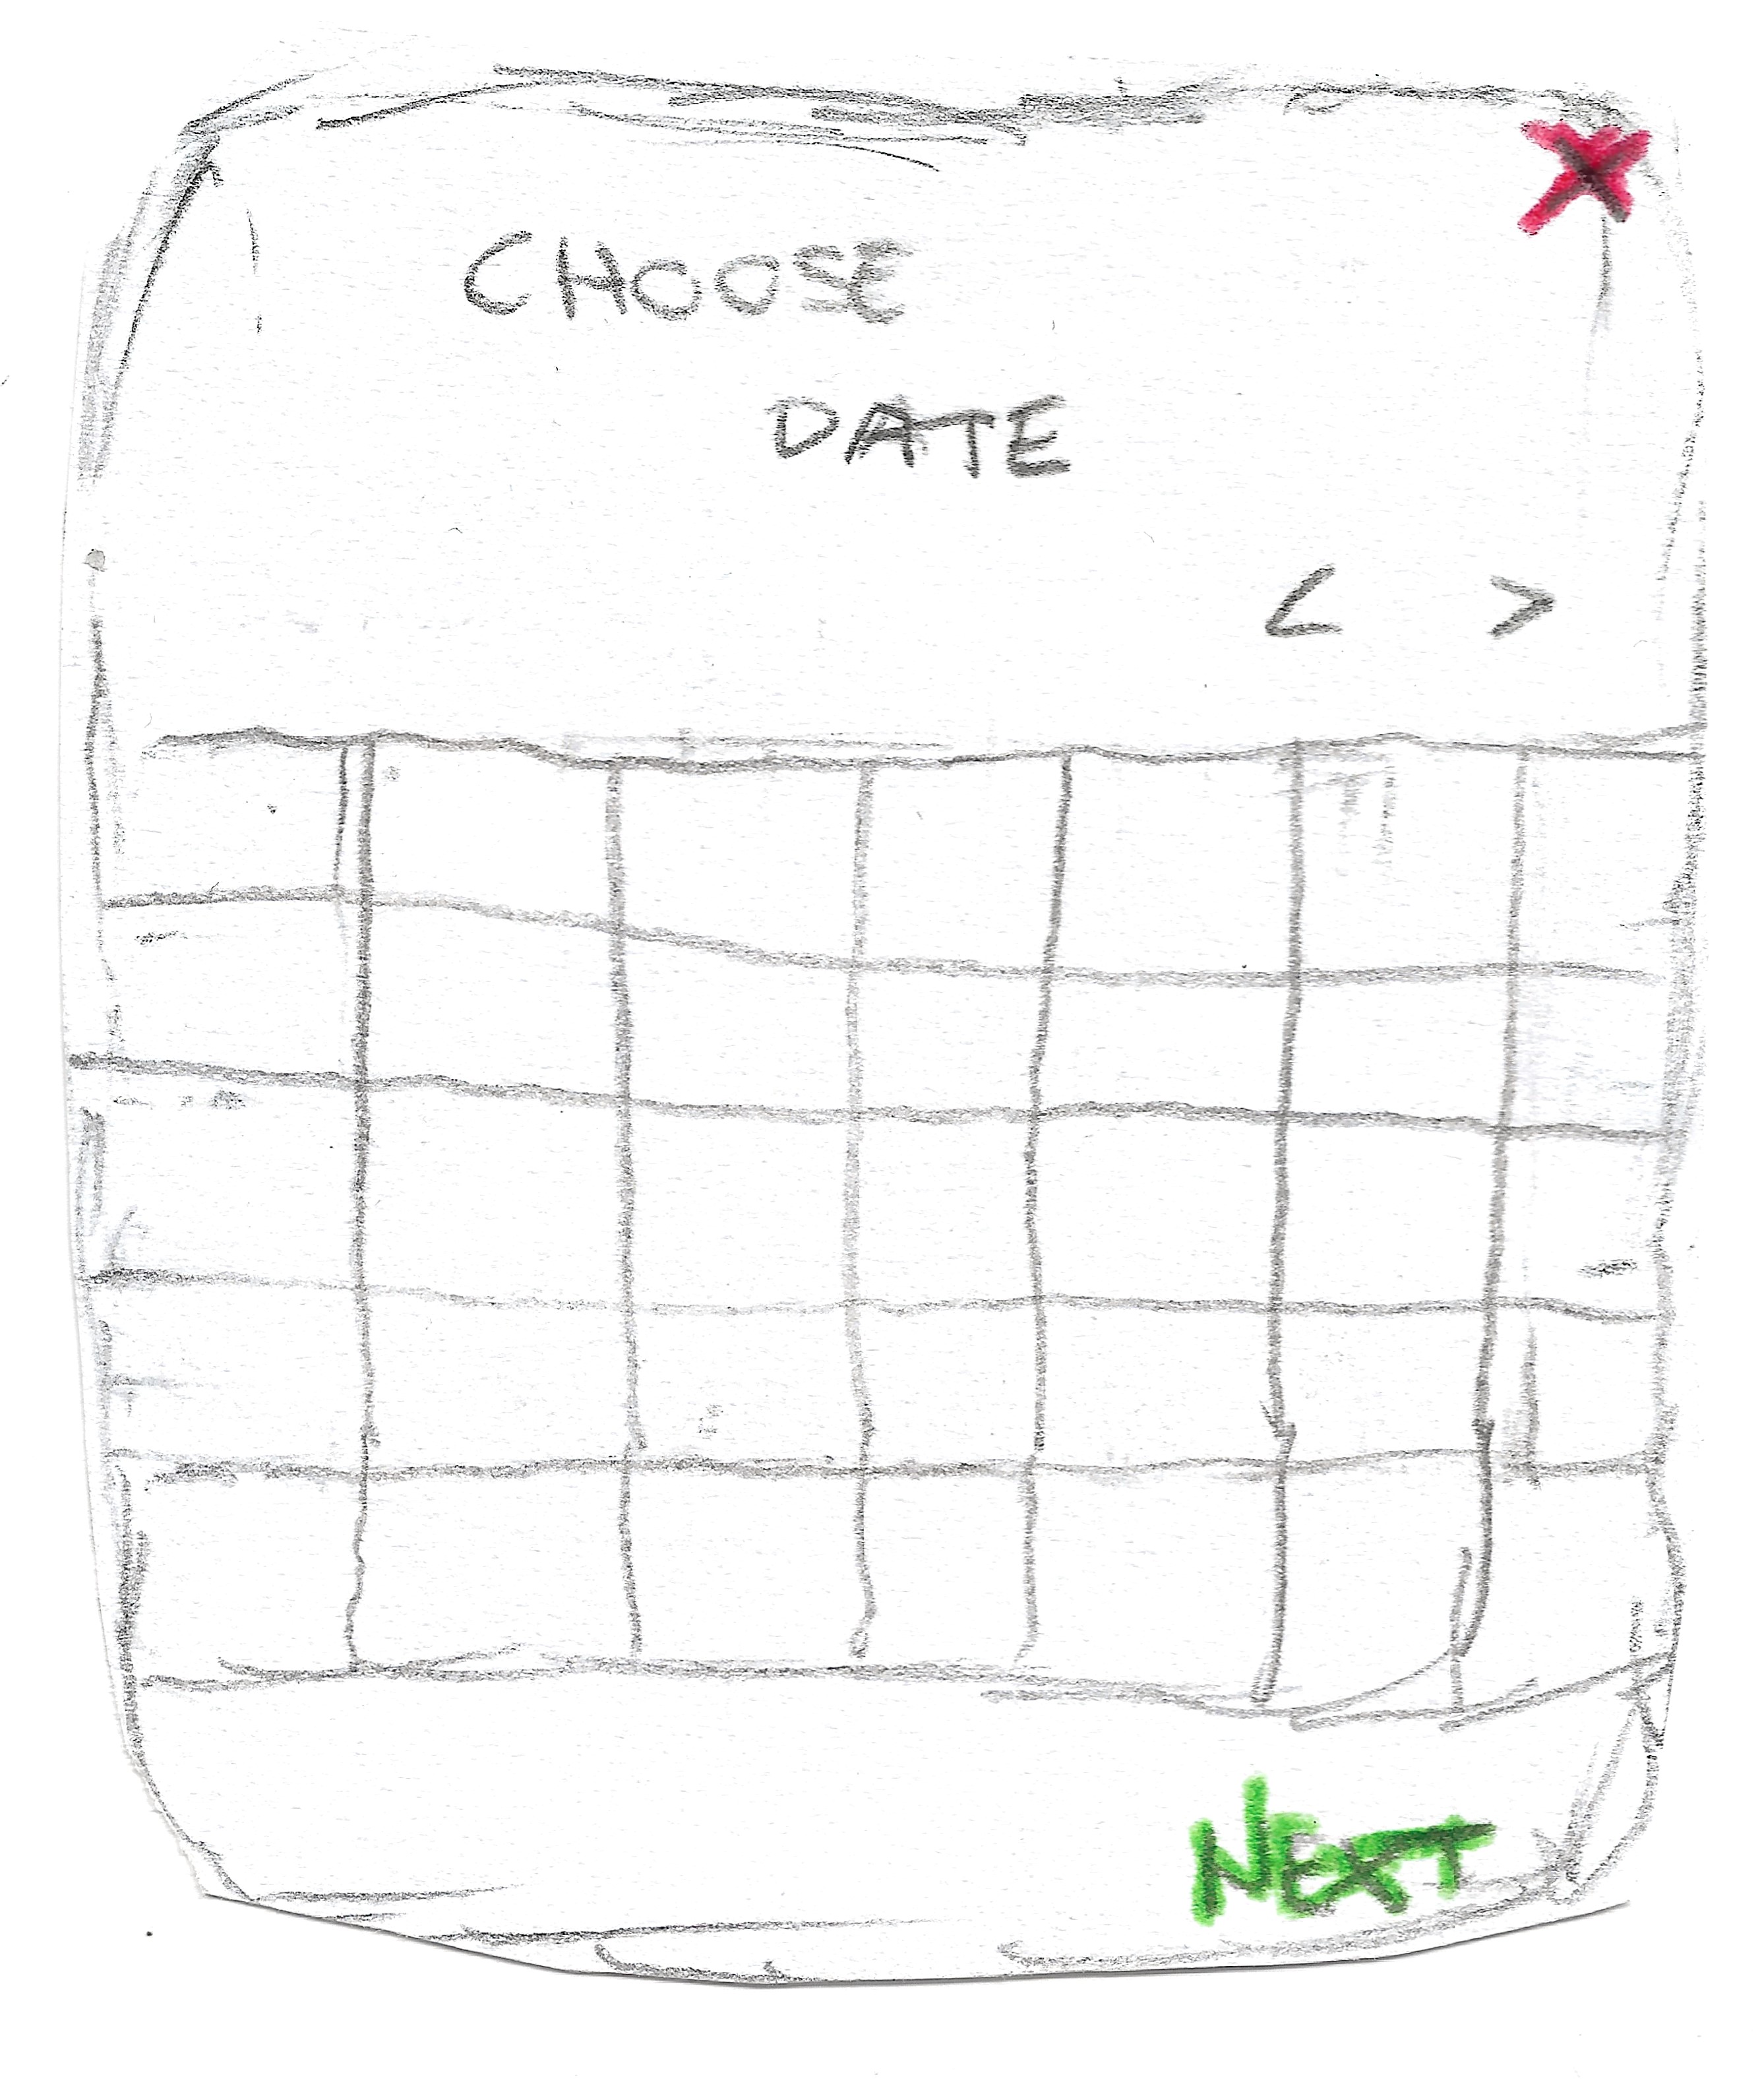 X
CHOOSE
DATE
< >
NEXT